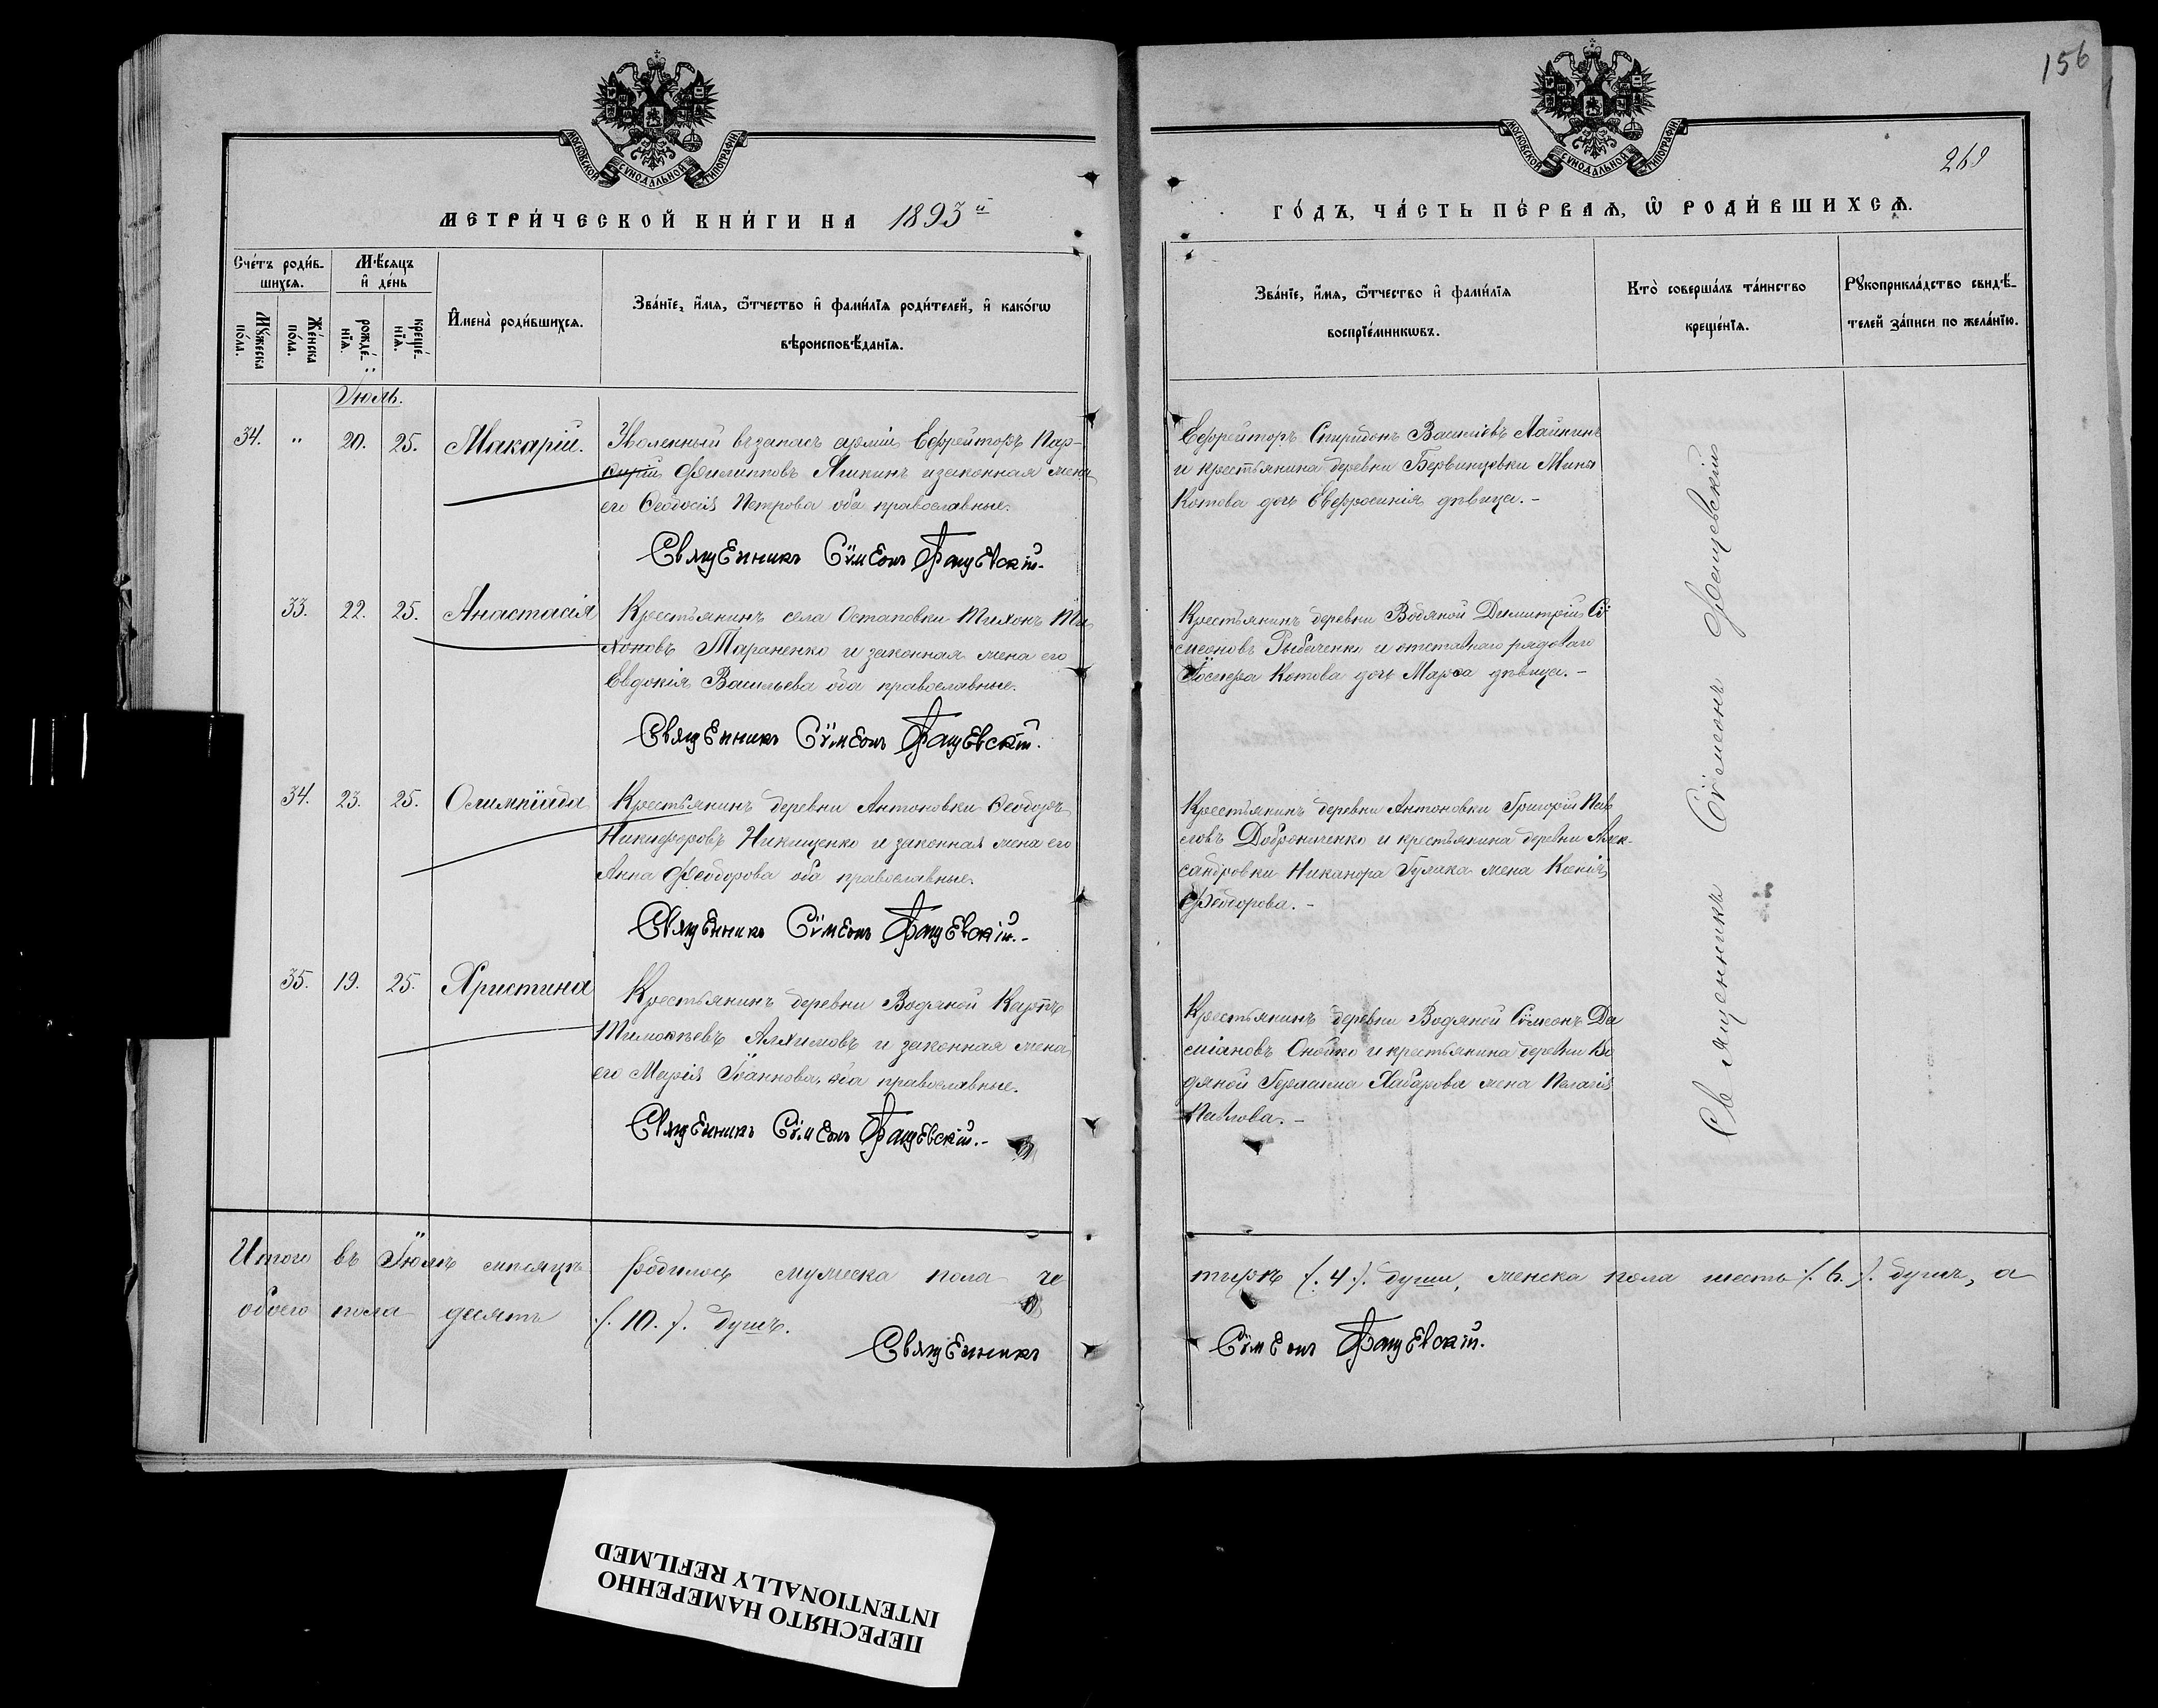 156
МОСКОВСКОЙ СУНОДАЛЬНОЙ ТИПОГРАФІИ
МОСКОВСКОЙ СУНОДАЛЬНОЙ ТИПОГРАФІИ
269
МЕТРИ́ЧЕСКОЙ КНИ́ГИ НА 1893й
ГО́ДЪ, ЧА́СТЬ ПЕ́РВАѦ, Ѡ РОДИ́ВШИХСѦ.
Сче́тъ роди́в-
шихсѧ.
Мꙋ́жеска по́ла.
Же́нска по́ла.
Мѣ́сѧцъ и҆ де́нь
рожде́-нїѧ.
креще́-нїѧ.
И҆мена̀ роди́вшихсѧ.
Зва́нїе, и҆́мѧ, ѻ҆́тчество и҆ фами́лїѧ роди́телей, и҆ како́гѡ
вѣроисповѣ́данїѧ.
Зва́нїе, и҆́мѧ, ѻ҆́тчество и҆ фами́лїѧ
воспрїе́мникѡвъ.
Кто̀ соверша́лъ та́инство
креще́нїѧ.
Рꙋкоприкла́дство свидѣ́-
телей за́писи по жела́нїю.
Іюль.
34. " 20. 25. Макарій.
Уволенный въ запасъ арміи Ефрейторъ Пар-
фирій Филипповъ Ляшкинъ и законная жена
его Ѳеодосія Петрова оба православные.
Священникъ Сѷмеонъ Фащевскій.
Ефрейторъ Спиридонъ Василіевъ Лайкинъ
и крестьянина деревни Бервинцевки Мины
Котова дочь Евфросинія дѣвица. -
33. 22. 25. Анастасія
Крестьянинъ села Остаповки Тихонъ Ти-
хоновъ Тараненко и законная жена его
Евдокія Васильева оба православные.
Священникъ Сѷмеонъ Фащевскій.
Крестьянинъ деревни Водяной Димитрій Сѷ
меоновъ Рыбаченко и отставного рядоваго
Іосифа Котова дочь Марѳа дѣвица. -
34. 23. 25. Олимпіада
Крестьянинъ деревни Антоновки Ѳеодоръ
Никифоровъ Никищенко и законная жена его
Анна Феодорова оба православные.
Священникъ Сѷмеонъ Фащевскій. -
Крестьянинъ деревни Антоновки Григорій Пав
ловъ Доброниченко и крестьянина деревни Алек-
сандровки Никанора Гулика жена Ксенія
Феодорова. -
35. 19. 25. Христина
Крестьянинъ деревни Водяной Карпъ
Тимоѳеевъ Алхимовъ и законная жена
его Марія Іоаннова, оба православные.
Священникъ Сѷмеонъ Фащевскій. -
Крестьянинъ деревни Водяной Сѷмеонъ Да
міановъ Онойко и крестьянина деревни Во
дяной Герасима Хабарова жена Пелагія
Павлова. -
Священникъ Сѷмеонъ Фащевскій
Итого въ Іюлѣ мѣсяцѣ родилось мужеска пола че
тыре /. 4 /. души, женска пола шесть /. 6. /. душъ, а
обоего пола десять /. 10. /. душъ.
Священникъ
Сѷмеонъ Фащевскій.
ПЕРЕСНЯТО НАМЕРЕННО
INTENTIONALLY REFILMED